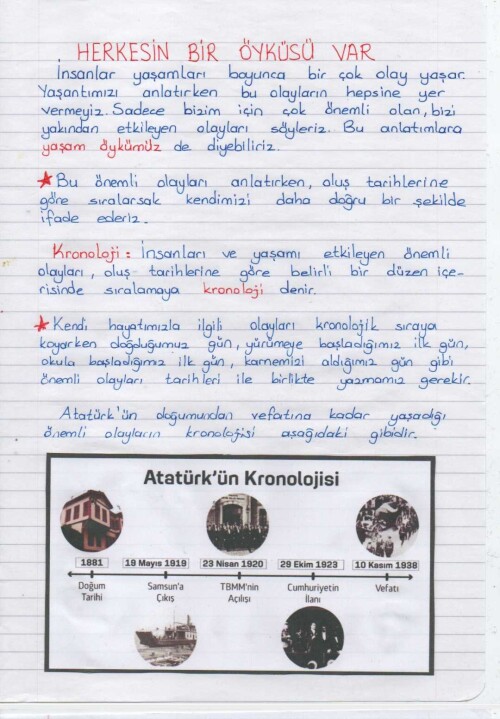 HERKESİN BİR ÖYKÜSÜ VAR
İnsanlar yaşamları boyunca bir çok olay yaşar.
Yaşantımızı anlatırken bu olayların hepsine yer
vermeyiz. Sadece bizim için çok önemli olan, bizi
yakından etkileyen olayları söyleriz. Bu anlatımlara
yaşam öykümüz de diyebiliriz.
★ Bu önemli olayları anlatırken, oluş tarihlerine
göre sıralarsak kendimizi daha doğru bir şekilde
ifade ederiz.
Kronoloji : İnsanları ve yaşamı etkileyen önemli
olayları, oluş tarihlerine göre belirli bir düzen içe-
risinde sıralamaya kronoloji denir.
★ Kendi hayatımızla ilgili olayları kronolojik sıraya
koyarken doğduğumuz gün, yürümeye başladığımız ilk gün,
okula başladığımız ilk gün, karnemizi aldığımız gün gibi
önemli olayları tarihleri ile birlikte yazmamız gerekir.
Atatürk'ün doğumundan vefatına kadar yaşadığı
önemli olayların kronolojisi aşağıdaki gibidir.
Atatürk'ün Kronolojisi
1881 19 Mayıs 1919 23 Nisan 1920 29 Ekim 1923 10 Kasım 1938
Doğum Samsun'a TBMM'nin Cumhuriyetin Vefatı
Tarihi Çıkış Açılışı İlanı